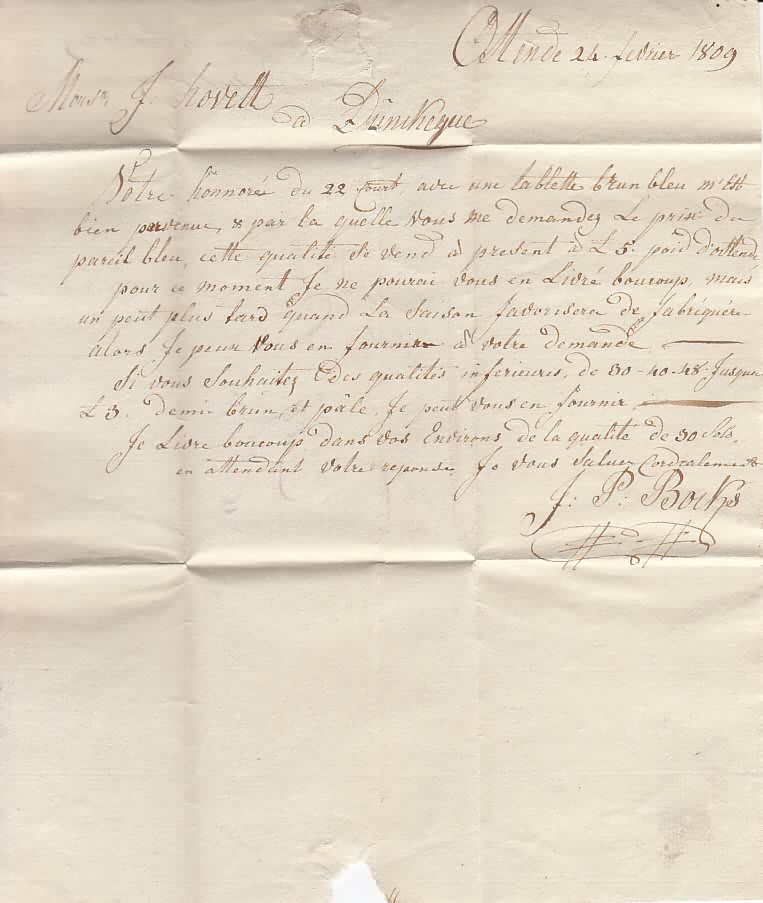 Ostende 24 fevrier 1809
Monsr J. hovelt
a Dünckerque
Votre honnorée du 22 Court avec une tablette brun bleu m'est
bien parvenue, & par la quelle vous me demandez Le prix du
pareil bleu, cette qualité se vend à present à £ 5. poid d'ostende,
pour ce moment Je ne pourai vous en Livré boucoup, mais
un peut plus tard quand La saison favorisera de fabriquére
alors Je peux vous en fournir à votre demande
Si vous Souhaitez des qualités inferieures, de 30-40-48 Jusque
£ 3. demi brun, et pâle, Je peut vous en fournir,
Je Livre boucoup dans vos Environs de la qualité de 30 Sols,
en attendant votre reponse, Je vous Saluez Cordialement
J: P: Bocks